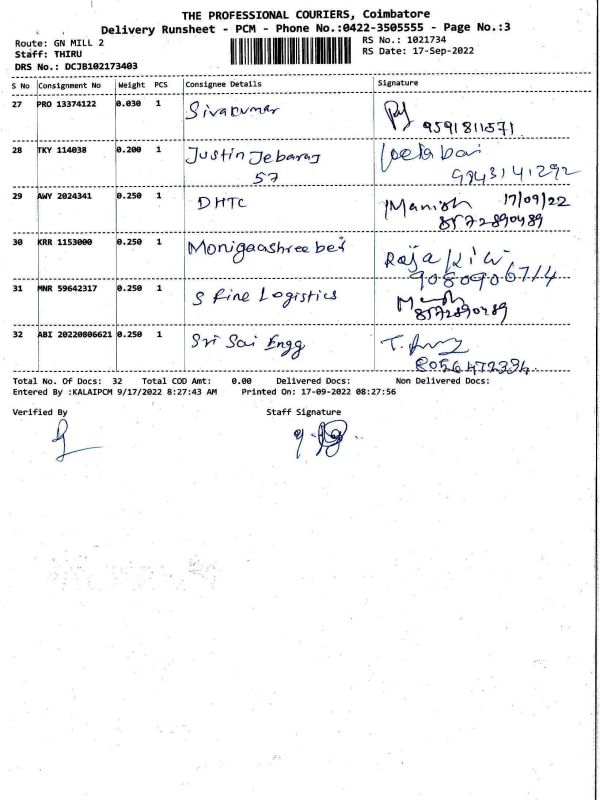 THE PROFESSIONAL COURIERS, Coimbatore
Delivery Runsheet - PCM - Phone No.:0422-3505555 - Page No.:3
Route: GN MILL 2 RS No.: 1021734
Staff: THIRU RS Date: 17-Sep-2022
DRS No.: DCJB102173403
S No Consignment No Weight PCS Consignee Details Signature
27 PRO 13374122 0.030 1 Sivakumar
9591811571
28 TKY 114038 0.200 1 Justin Jebaraj
57 9843141292
29 AWY 2024341 0.250 1 DHTC Manish 17/09/22
8572890489
30 KRR 1153000 0.250 1 Raja
9080906714
31 MNR 59642317 0.250 1 S Fine Logistics
8572890489
32 ABI 20220806621 0.250 1 Sri Sai Engg
Total No. Of Docs: 32 Total COD Amt: 0.00 Delivered Docs: Non Delivered Docs:
Entered By :KALAIPCM 9/17/2022 8:27:43 AM Printed On: 17-09-2022 08:27:56
Verified By Staff Signature